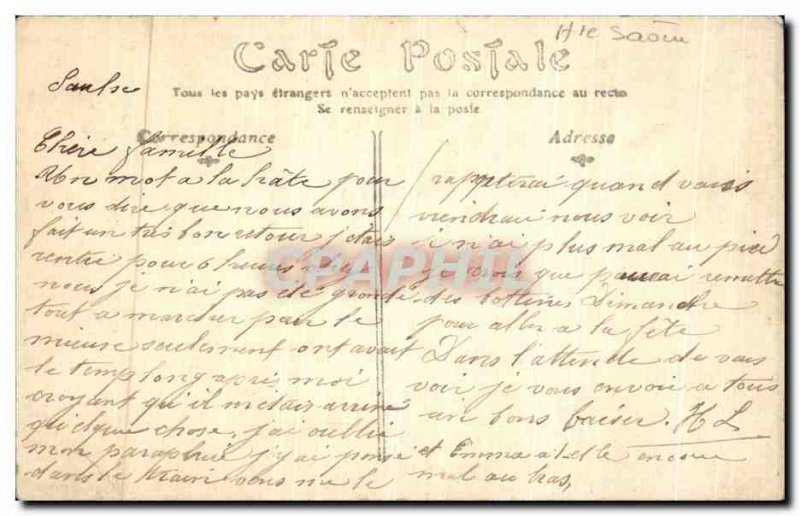 Hte Saône
Carte Postale
Saulse
Tous les pays étrangers n'acceptent pas la correspondance au recto
Se renseigner à la poste
Correspondance
Adresse
Chère famille
Un mot a la hâte pour
vous dire que nous avons
fait un très bon retour j'étais
rentré pour 6 heures
nous je n'ai pas été grondé
tout a marcher pour le
mieux seulement ont avait
le temp long après moi
croyant qu'il m'etais arrivé
quelque chose, j'ai oublié
mon parapluie j'y ai pensé
dans le train vous me le
rapporterai quand vous
viendrai nous voir
je n'ai plus mal au pied
je crois que pourrai remettre
des bottines Dimanche
pour aller a la fête
Dans l'attende de vous
voir je vous envoie a tous
un bons baiser. H L
et Emma a t elle encore
mal au bras,
CPAPHIL